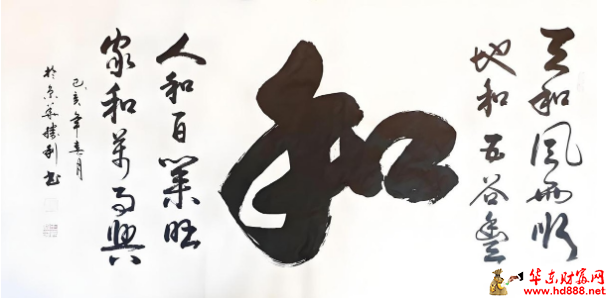 天和风雨顺
地和五谷豐
和
人和百業旺
家和萬事興
己亥年春月
於京華勝利书
华东财富网
www.hd888.net